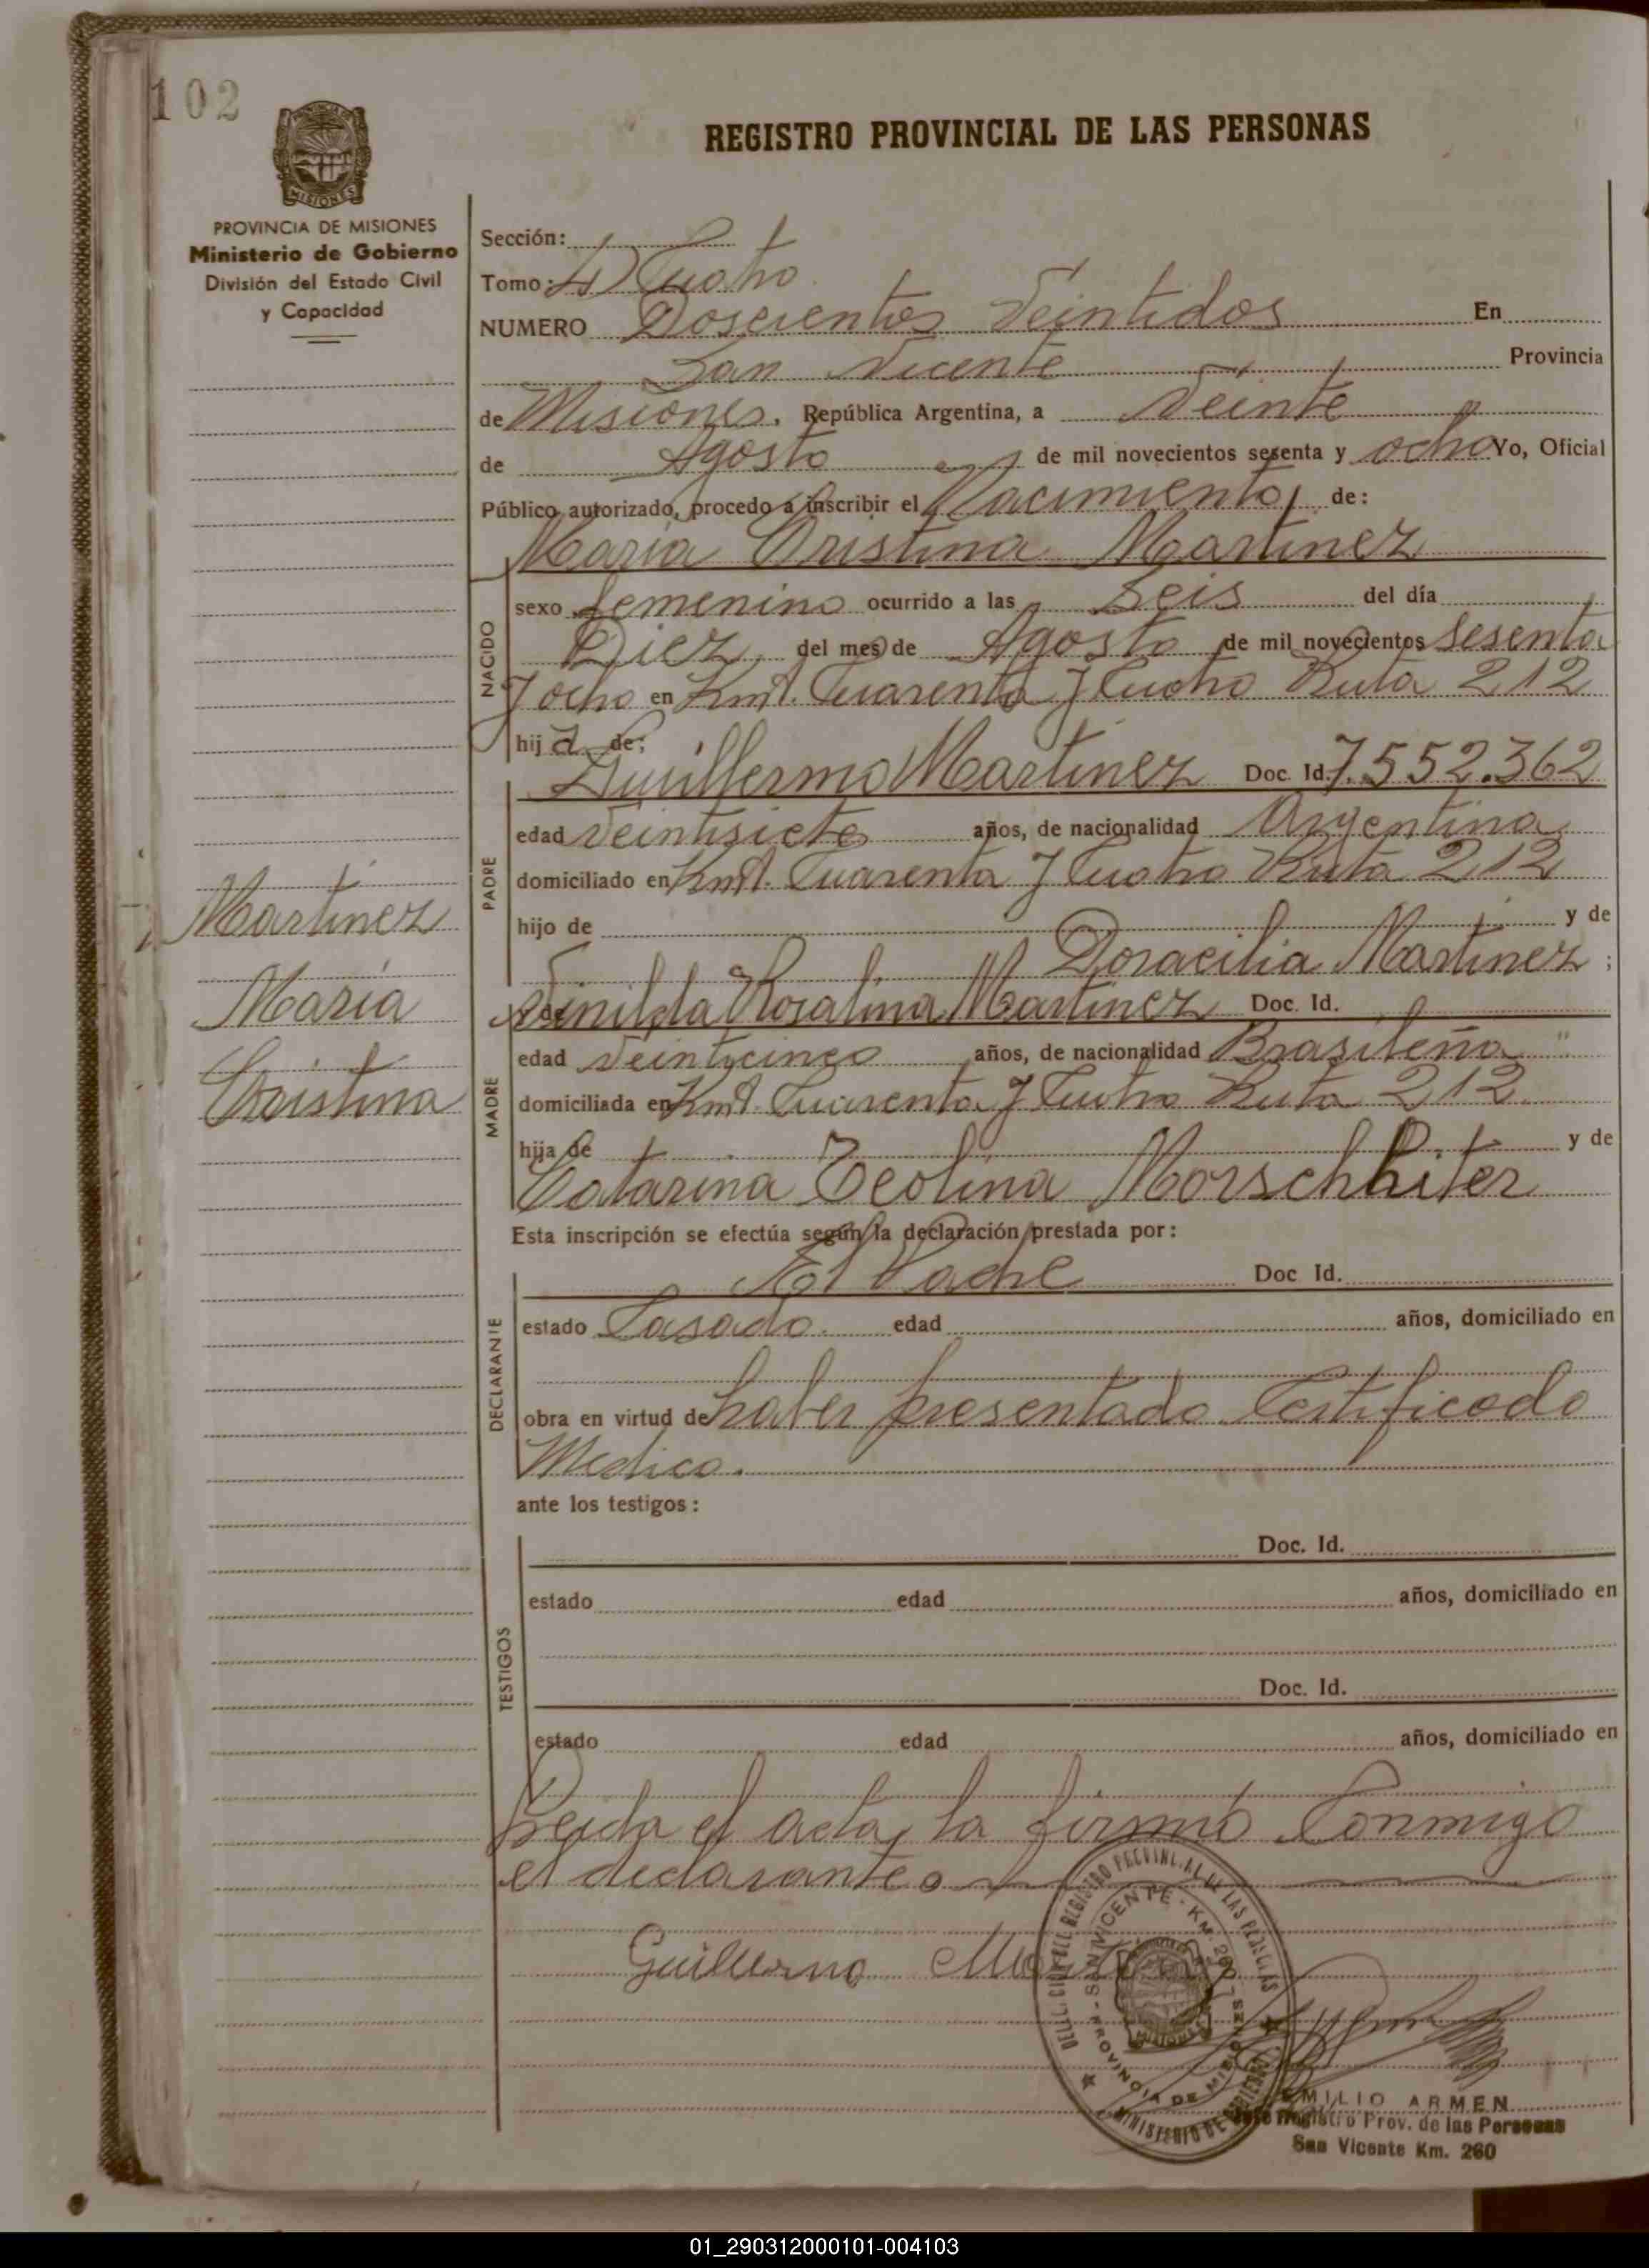 102
REGISTRO PROVINCIAL DE LAS PERSONAS
PROVINCIA DE MISIONES
Ministerio de Gobierno
División del Estado Civil
y Capacidad
Sección:
Tomo: Cuatro
NUMERO Doscientos Veintidos En
San Vicente Provincia
de Misiones. República Argentina, a Veinte
de Agosto de mil novecientos sesenta y ocho Yo, Oficial
Público autorizado, procedo a inscribir el Nacimiento de:
Maria Cristina Martinez
NACIDO
sexo femenino ocurrido a las Seis del día
Diez del mes de Agosto de mil novecientos Sesenta
y ocho en Kmt. Cuarenta y Cuatro Ruta 212
hija de:
PADRE
Guillermo Martinez Doc. Id. 7.552.362
edad Veintisiete años, de nacionalidad Argentina
domiciliado en Kmt. Cuarenta y Cuatro Ruta 212
hijo de y de
Doracilia Martinez ;
Martinez
Maria
Cristina
MADRE
Rosalina Martinez Doc. Id.
edad Veinticinco años, de nacionalidad Brasileña "
domiciliada en Kmt. Cuarenta y Cuatro Ruta 212.
hija de y de
Catarina Teolina Morschhiter
Esta inscripción se efectúa según la declaración prestada por:
DECLARANTE
El Padre Doc Id.
estado Casado. edad años, domiciliado en
obra en virtud de haber presentado Certificado
Medico.
ante los testigos:
TESTIGOS
Doc. Id.
estado edad años, domiciliado en
Doc. Id.
estado edad años, domiciliado en
Leida el acta, la firmó Conmigo
el declarante
Guillermo
REGISTRO PROVINCIAL DE LAS PERSONAS
SAN VICENTE - KM. 260
PROVINCIA DE MISIONES
MINISTERIO DE GOBIERNO
EMILIO ARMEN
Jefe Registro Prov. de las Personas
San Vicente Km. 260
01_290312000101-004103